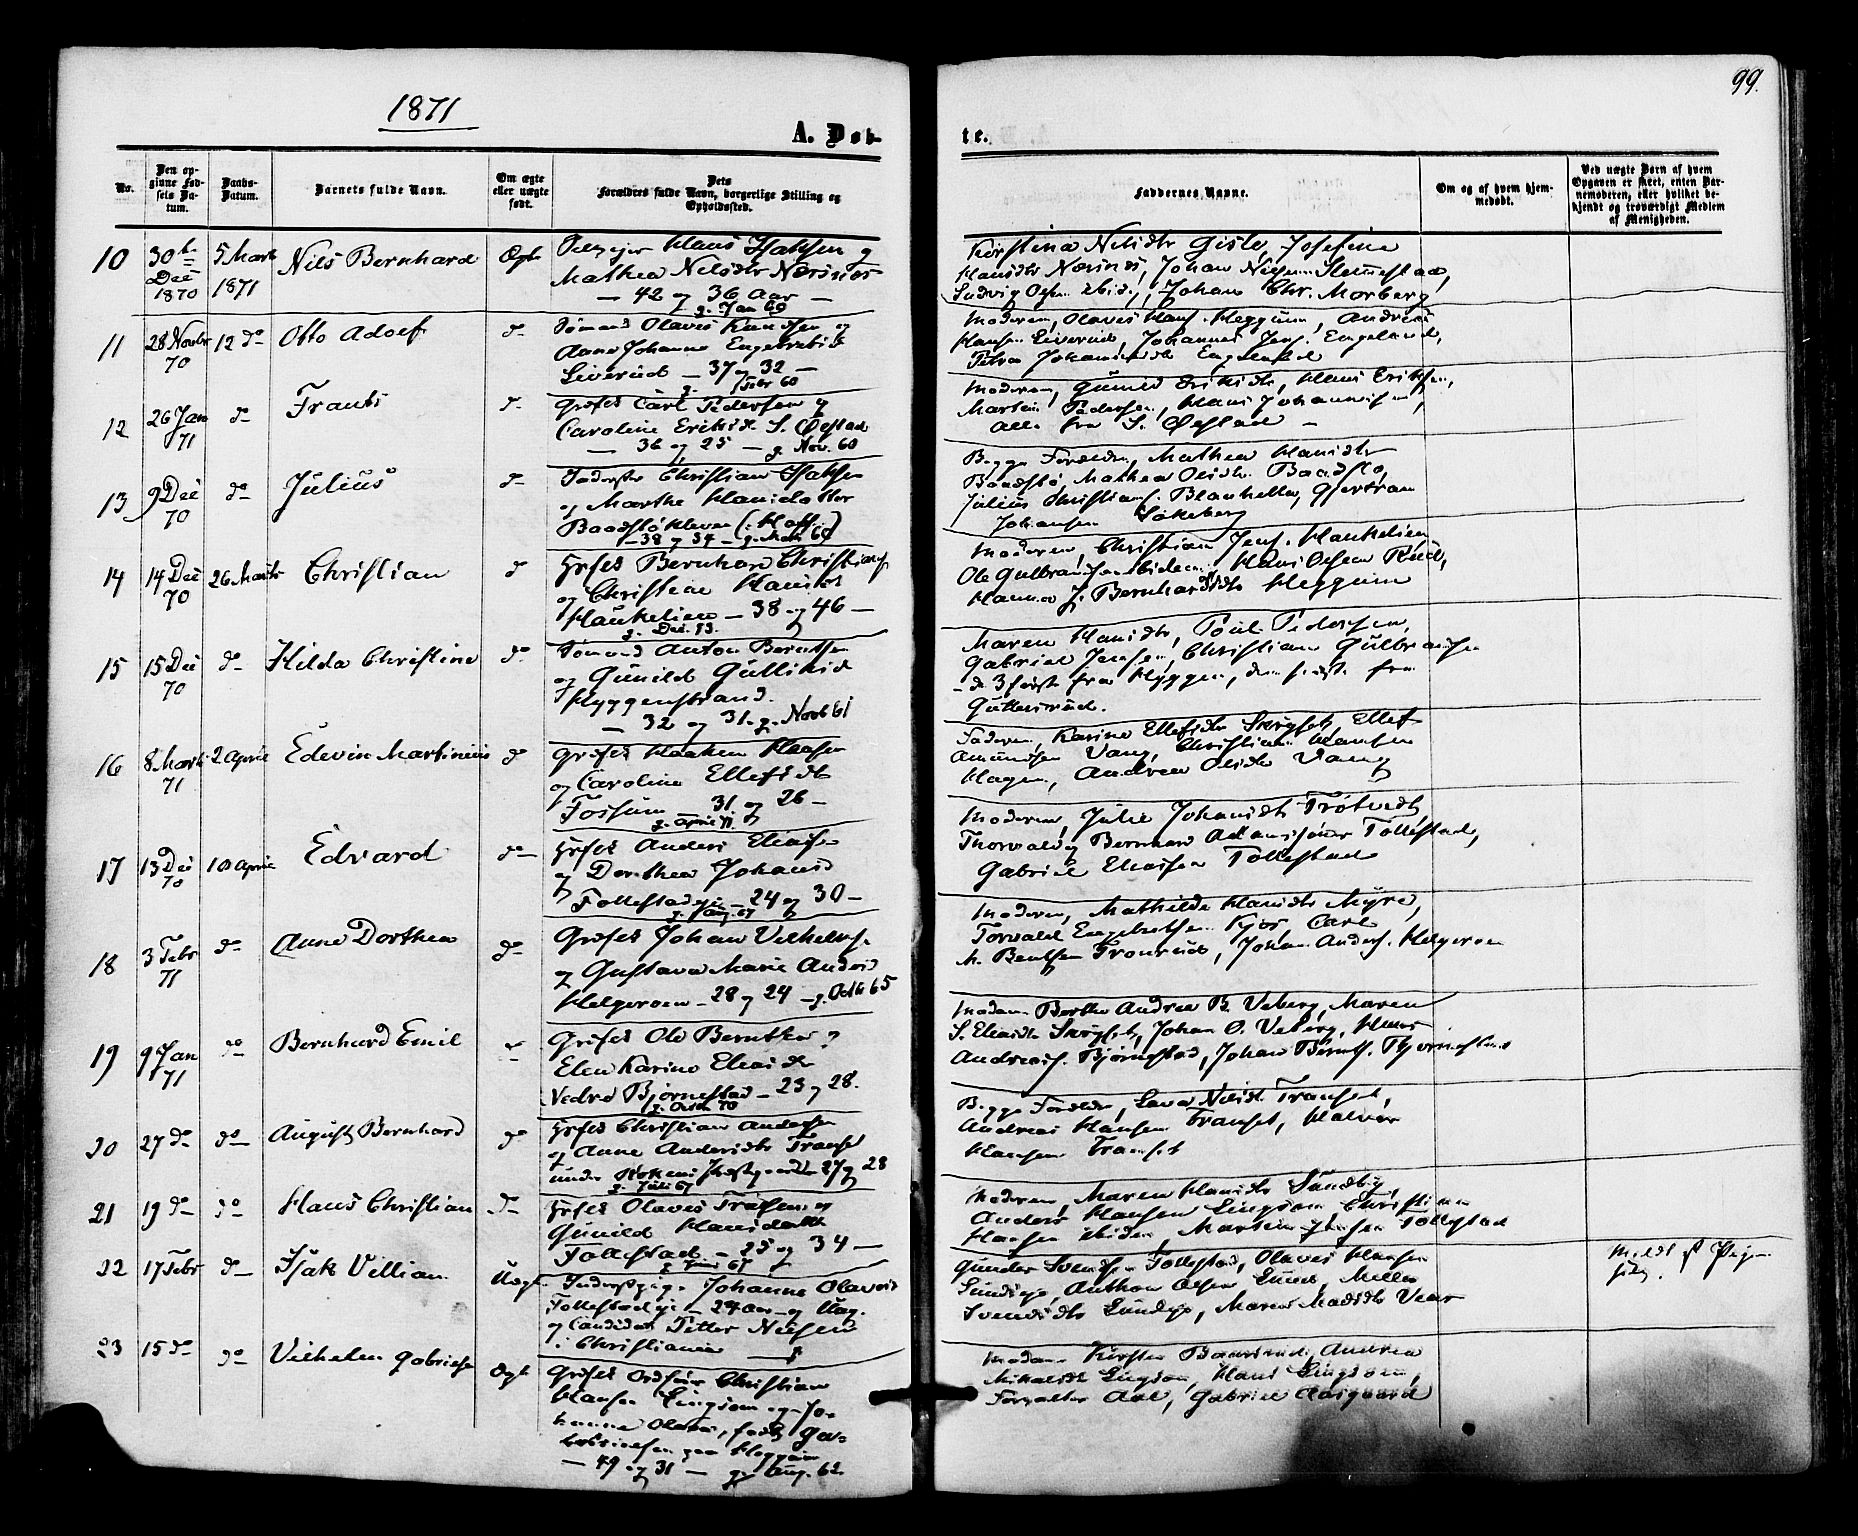 1871
99.
A. Døb-
te.
No.
Den op-
givne Fød-
sels Da-
tum.
Daabs-
Datum.
Barnets fulde Navn.
Om ægte
eller uægte
født.
Dets
Forældres fulde Navn, borgerlige Stilling og
Opholdssted.
Faddernes Navne.
Om og af hvem hjem-
medøbt.
Ved uægte Børn af hvem
Opgaven er skeet, enten Bar-
nemoderen, eller hvilket be-
kjendt og troværdigt Medlem
af Menigheden.
10
30te
Dec
1870
5 Marts
1871
Nils Bernhard
Ægte
Hans Isaksen og
Mathea Nilsdtr Nærsnæs
— 42 og 36 Aar —
g. Jan 69
Kirstina Nilsdtr Gisle, Josefine
Hansdtr Nærsnæs, Johan Nilsen Stennestad,
Ludvig Olsen ibid, Johan Chr. Morberg
11
28 Novbr
70
12 do
Otto Adolf
do
Sømand Olaves Knudsen og
Anne Johanne Engebretsdt
Liverud — 37 og 32 —
g. Febr 60
Moderen, Olaves Hans. Heggum, Andreas
Hansen Liverud, Johannes Jens. Engelund,
Petra Johannesdt
12
26 Jan
71
do
Frants
do
Grdfsd Carl Pedersen og
Caroline Eriksdt S. Øfstad
— 36 og 25 — g. Nov. 60
Moderen, Gunild Eriksdtr, Hans Eriksen,
Martin Pedersen, Hans Johannesen,
alle fra S. Øfstad —
13
9 Dec
70
do
Julius
do
Christian Isaksen
og Marthe Hansdatter
Baadstøkleven
— 38 og 34 — g. 69
Begge Forældre, Mathea Hansdtr
Baadstø, Mathea Olsdtr Baadstø,
Julius Christians.
Johansen Søkeberg
14
14 Dec
70
26 Marts
Christian
do
Hrfsd Bernhard Christians.
og Christine Hansdt
Haukelien — 38 og 46 —
g. Dec. 53.
Moderen, Christian Jens. Haukelien
Ole Gulbrandsen ibidem, Hans Olsen Rud,
Hanna J. Bernhardsdtr Heggum
15
15 Dec
70
do
Hilda Christine
do
Sømand Anton Berntsen
og Gunild Gulliksd
Hyggenstrand.
— 32 og 31. g. Novb 61
Maren Hansdtr, Poul Pedersen,
Gabriel Jensen, Christian Gulbrandsen
— de 3 første fra Hyggen, den sidste fra
Guttersrud.
16
8 Marts
71
2 April
Edevin Martinius
do
Grdfsd Haaken Hansen
og Caroline Ellefsdt
Fossum — 31 og 26 —
g. April 71.
Faderen, Karine Ellefsdtr Skryset, Ellef
Amundsen Vang, Christian Hansen
Hagen, Andrea Olsdtr Vang
17
13 Dec
70
10 April
Edvard
do
Hrfsd Anders Eliasen
og Dorthea Johansd
Tollestadeje — 24 og 30 —
g. Aug. 67
Moderen Julie Johansdt Trøtvedt
Thorvald og Bernhard Adamsønner Tollestad,
Gabriel Eliassen Tollestad
18
3 Febr
71
do
Anne Dorthea
do
Grdfsd Johan Vilhelms.
og Gustava Marie Andersd
Helgeroen — 28 og 24 — g. Octb 65
Moderen, Mathilde Hansdtr Myre,
Torvald Engebretsen Kjøs, Carl
M. Bentsen Tronrud, Johan Anders. Helgeroen
19
9 Jan
71
do
Bernhard Emil
Grdfsd Ole Berntsen og
Elen Karine Eliasdtr
Nedre Bjørnestad — 23 og 28.
g. Octb 70
Moderen Berthe Andrea B. Veberg, Maren
S. Eliasdtr Skryset, Johan O. Veberg, Hans
Andreas. Bjørnestad, Johan Bernts. Bjørnestad
20
27 do
do
August Bernhard
do
Hrfsd Christian Andersen
og Anne Andersdtr Transet
under Røkens Prestegaard 27 og 28
g. Juli 67
Begge Forældre, Lava Nilsdt Transet,
Andreas Hansen Transet, Halvor
Hansen Transet
21
19 do
do
Hans Christian
do
Hrfsd Olaves og
Gunild Hansdattr
Tollestad — 25 og 34 —
g. Juni 67
Moderen, Maren Hansdtr Sundby,
Anders Hansen Lingsom, Christian
Hansen ibidem, Martin Jensen Tollestad
22
17 Febr
do
Isak Villian
Uægte
Johanne Olavesd
Tollestadeje — 24 Aar — og Ung.
og Candidat Petter Nielsen
i Christiania
Gunder Svendsen Tollestad, Olaves Hansen
Sundeje, Anthon Olsen Lund, Milla
Svendsdtr Sundeje, Maren Madsdtr Vear
23
15 do
do
Vilhelm Gabriel
Ægte
Grdfsd Ordfører Christian
Hansen Lingsom og Jo-
hanne Olava, født Ga-
brielsen paa Heggum
— 49 og 31 — g. Aug. 62
Moderen Kirsten, Andrea
Lingsom, Hans Lingsom,
Forvalter Aal, Gabriel Aasgaard